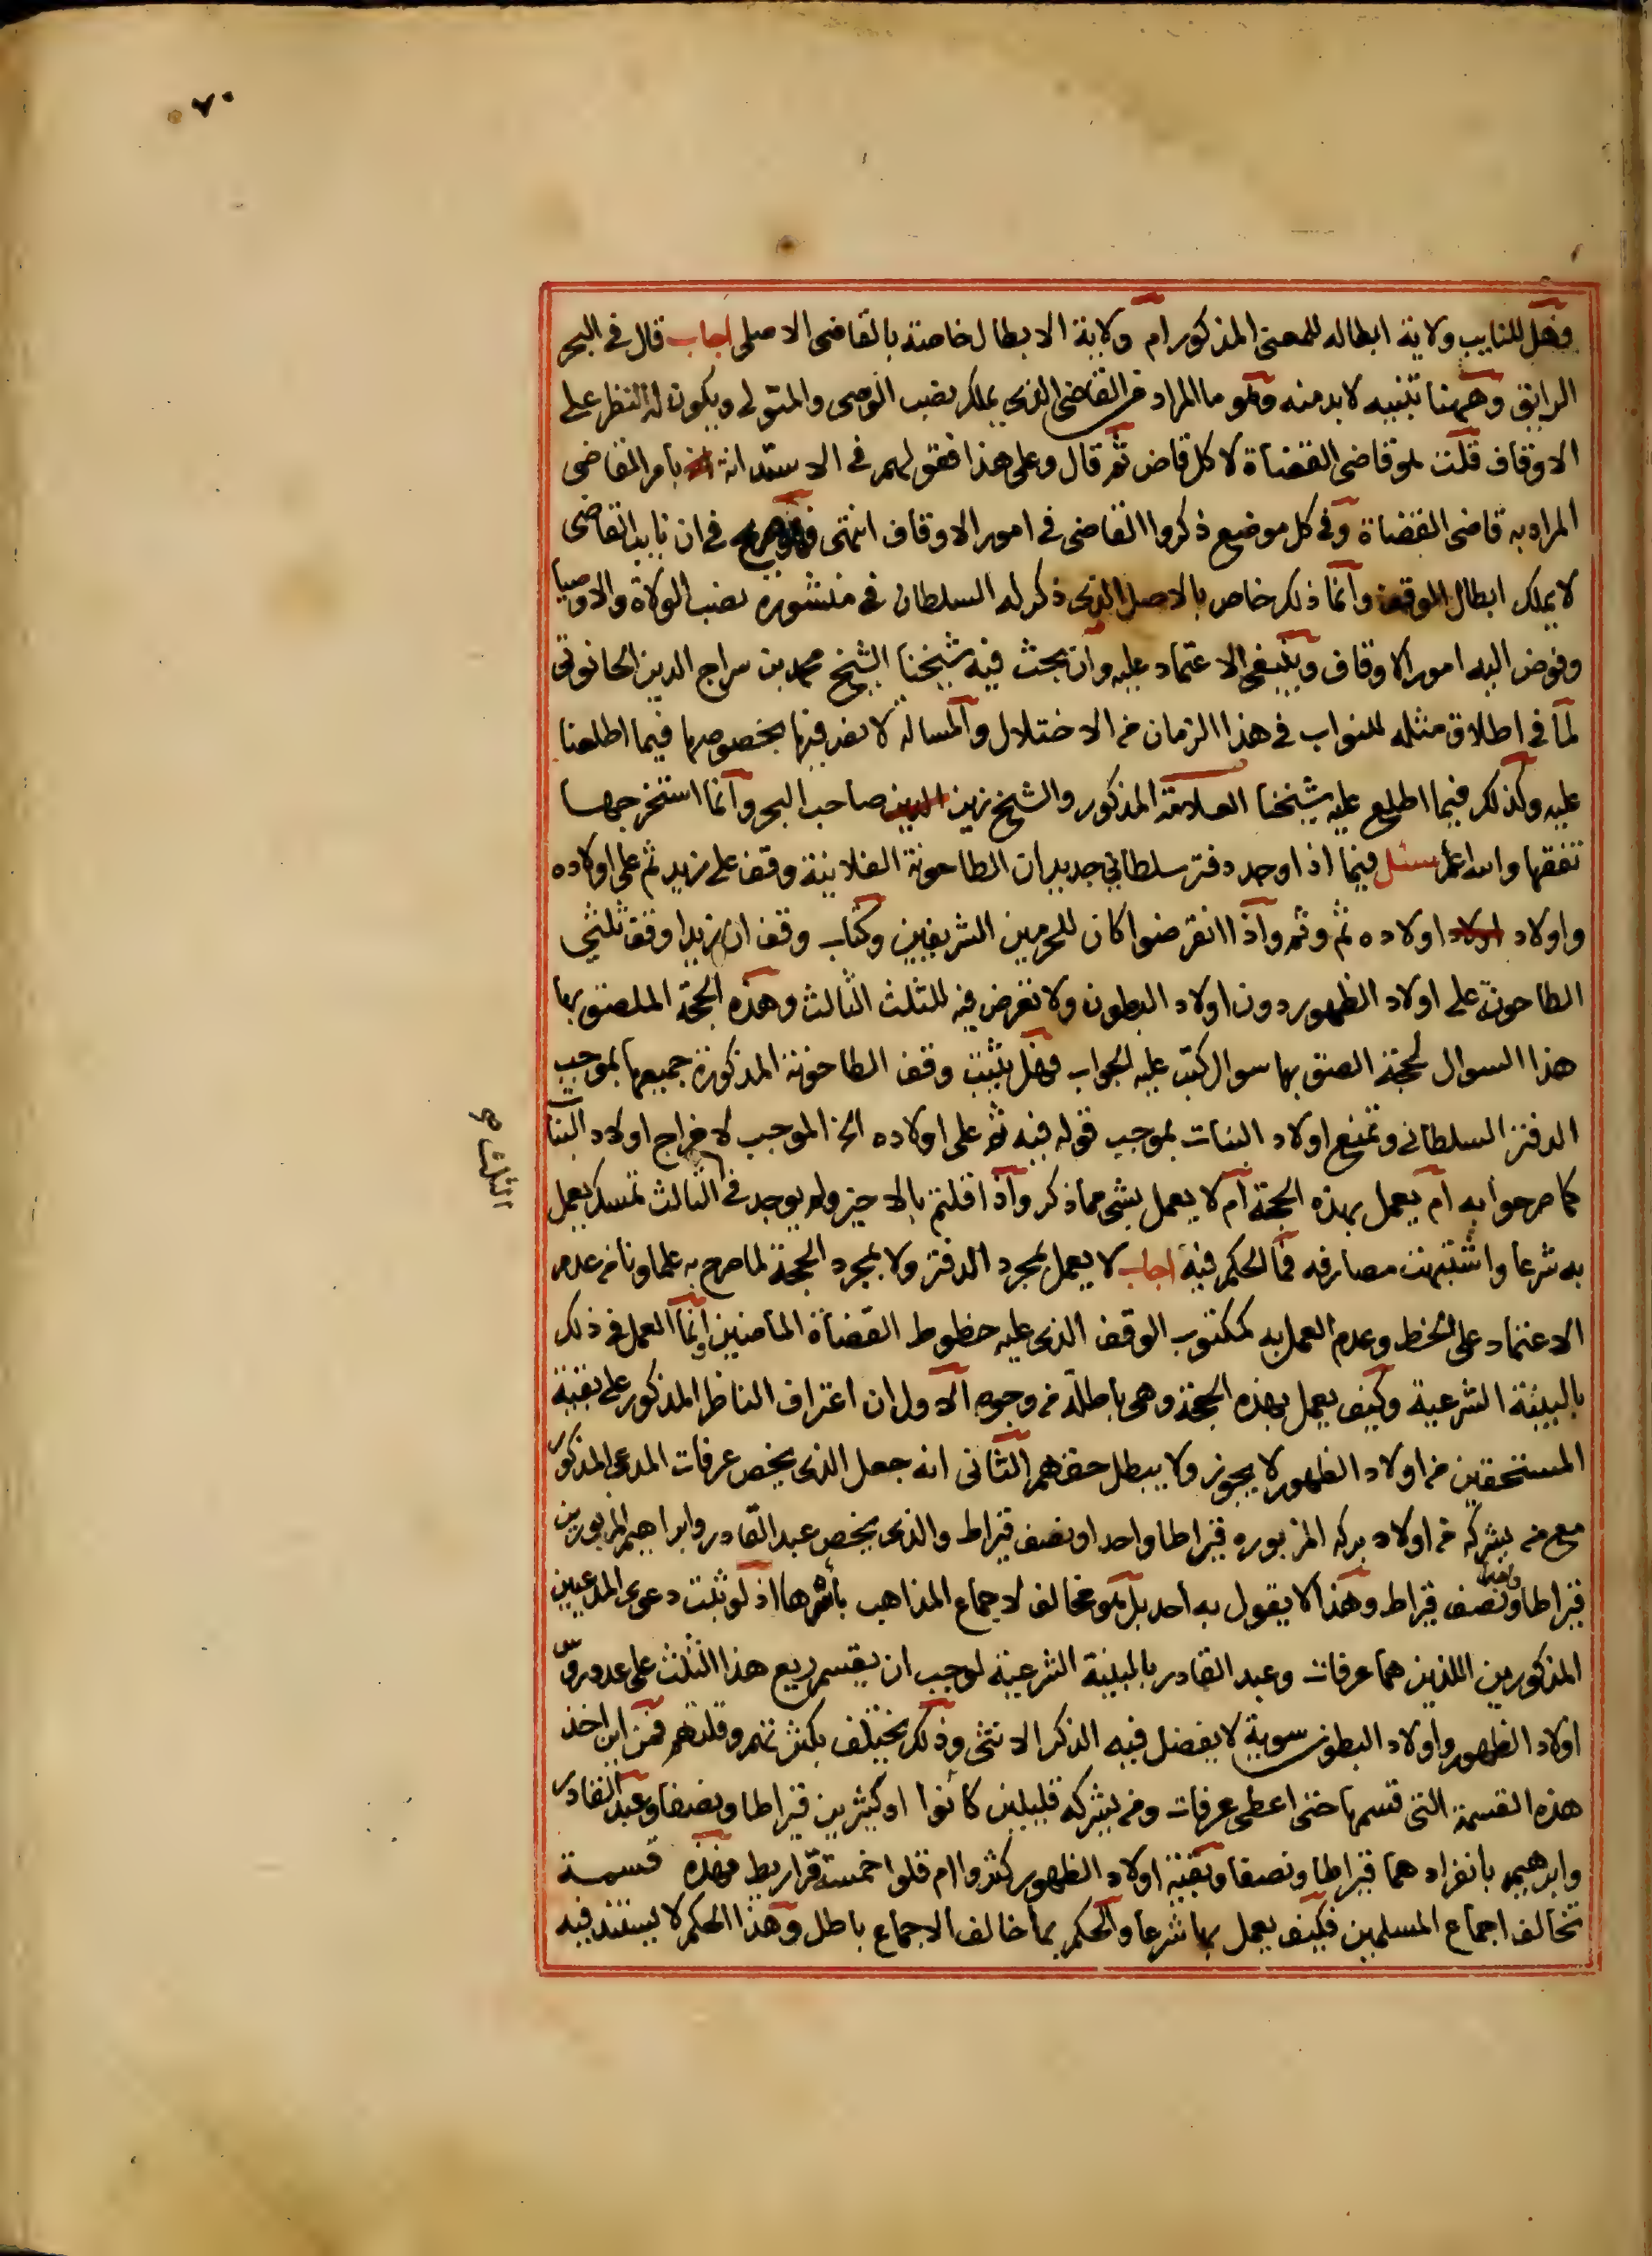 ٧٠
وهل للنايب ولاية ابطاله للمعنى المذكور ام ولاية الابطال خاصة بالقاضى الاصلى اجاب قال فى البحر
الرايق وههنا تنبيه لابد منه وهو ما المراد من القاضى الذى يملك نصب الوصى والمتولى ويكون له النظر على
الاوقاف قلت هو قاضى القضاة لا كل قاض ثم قال وعلى هذا فقولهم فى الاستدانة بامر القاضى
المراد به قاضى القضاة وفى كل موضع ذكروا القاضى فى امور الاوقاف انتهى فهو صريح فى ان نايب القاضى
لا يملك ابطال الوقف وانما ذلك خاص بالاصل الذى ذكر له السلطان فى منشوره نصب الولاة والاوصيا
وفوض اليه امور الاوقاف وينبغى الاعتماد عليه وان بحث فيه شيخنا الشيخ محمد بن سراج الدين الحانوتى
لما فى اطلاق مثله للنواب فى هذا الزمان من الاختلال والمسالة لا نص فيها بخصوصها فيما اطلعنا
عليه وكذلك فيما اطلع عليه شيخنا العلامة المذكور والشيخ زين الدين صاحب البحر وانما استخرجها
تفقها والله اعلم سئل فيما اذا وجد دفتر سلطانى جديد ان الطاحونة الفلانية وقف على زيد ثم على اولاده
واولاد اولاد اولاده ثم وثم واذا انقرضوا كان للحرمين الشريفين وكتاب وقف ان زيدا وقف ثلثى
الطاحونة على اولاد الظهور دون اولاد البطون ولا تعرض فيه للثلث الثالث وهذه الحجة الملصق بها
هذا السوال لحجة الصق بها سوال كتب عليه الجواب فهل يثبت وقف الطاحونة المذكورة جميعها بموجب
الدفتر السلطانى وتمنع اولاد البنات بموجب قوله فيه ثم على اولاده الخ الموجب لاخراج اولاد البنات
كما صرحوا به ام يعمل بهذه الحجة ام لا يعمل بشى مما ذكر واذا قلتم بالاخير ولم يوجد فى الثالث تمسك يعمل
الثلث صح
به شرعا واشتبهت مصارفه فما الحكم فيه اجاب لا يعمل بمجرد الدفتر ولا بمجرد الحجة لما صرح به علماونا من عدم
الاعتماد على الخط وعدم العمل به كمكتوب الوقف الذى عليه خطوط القضاة الماضين وانما العمل فى ذلك
بالبينة الشرعية وكيف يعمل بهذه الحجة وهى باطلة من وجوه الاول ان اعتراف الناظر المذكور على بقية
المستحقين من اولاد الظهور لا يجوز ولا يبطل حقهم الثانى انه جعل الذى يخص عرفات المدعى المذكور
مع من يشركه من اولاد بركه المزبوره قيراطا واحدا ونصف قيراط والذى يخص عبد القادر وابراهيم المزبورين
قيراطا واحدا ونصف قيراط وهذا لا يقول به احد بل هو مخالف لاجماع المذاهب باسرها اذ لو ثبت دعوى المدعيين
المذكورين اللذين هما عرفات وعبد القادر بالبينة الشرعية لوجب ان يقسم ريع هذا الثلث على عدد روس
اولاد الظهور واولاد البطون سوية لا يفضل فيه الذكر الانثى وذلك يختلف بكثرتهم وقلتهم فمن اين اخذ
هذه القسمة التى قسمها حتى اعطى عرفات ومن يشركه قليلين كانوا او كثيرين قيراطا ونصفا وعبد القادر
وابرهيم بانفرادهما قيراطا ونصفا وبقية اولاد الظهور كثروا ام قلوا خمسة قراريط فهذه قسمة
تخالف اجماع المسلمين فكيف يعمل بها شرعا والحكم بما خالف الاجماع باطل وهذا الحكم لا يستند فيه